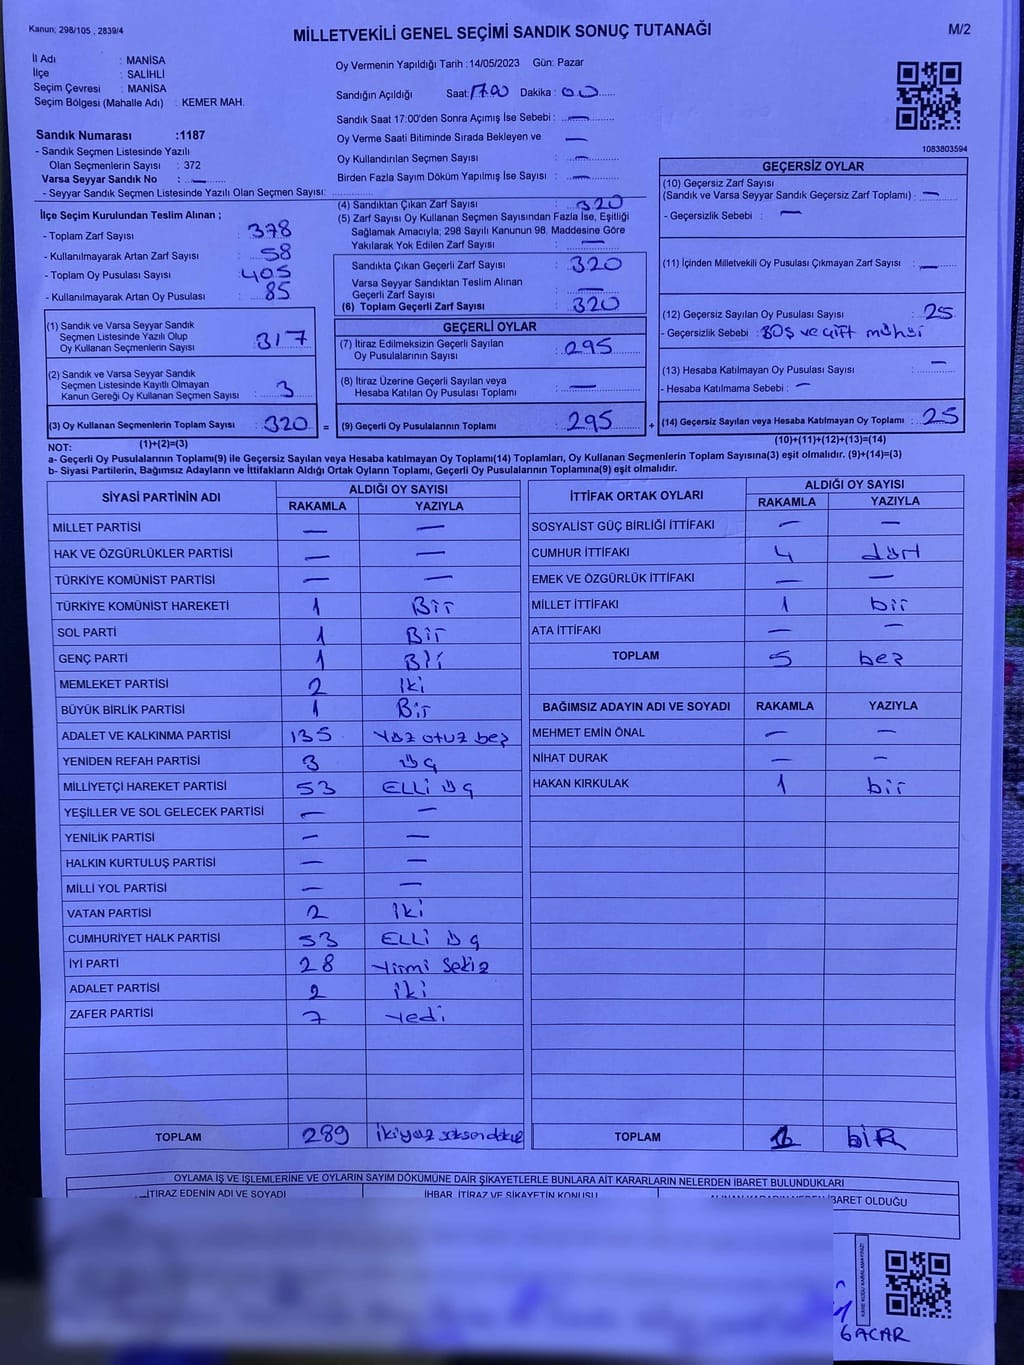 Kanun; 298/105 , 2839/4
MİLLETVEKİLİ GENEL SEÇİMİ SANDIK SONUÇ TUTANAĞI
M/2
İl Adı : MANİSA
İlçe : SALİHLİ
Seçim Çevresi : MANİSA
Seçim Bölgesi (Mahalle Adı) : KEMER MAH.
Sandık Numarası :1187
- Sandık Seçmen Listesinde Yazılı
Olan Seçmenlerin Sayısı : 372
Varsa Seyyar Sandık No : —
- Seyyar Sandık Seçmen Listesinde Yazılı Olan Seçmen Sayısı:
Oy Vermenin Yapıldığı Tarih :14/05/2023 Gün: Pazar
Sandığın Açıldığı Saat: 17.00 Dakika : 00
Sandık Saat 17:00'den Sonra Açımış İse Sebebi : —
Oy Verme Saati Bitiminde Sırada Bekleyen ve —
Oy Kullandırılan Seçmen Sayısı : —
Birden Fazla Sayım Döküm Yapılmış İse Sayısı : —
1083803594
İlçe Seçim Kurulundan Teslim Alınan ;
- Toplam Zarf Sayısı : 378
- Kullanılmayarak Artan Zarf Sayısı : 58
- Toplam Oy Pusulası Sayısı : 405
- Kullanılmayarak Artan Oy Pusulası : 85
(1) Sandık ve Varsa Seyyar Sandık
Seçmen Listesinde Yazılı Olup
Oy Kullanan Seçmenlerin Sayısı : 317
(2) Sandık ve Varsa Seyyar Sandık
Seçmen Listesinde Kayıtlı Olmayan
Kanun Gereği Oy Kullanan Seçmen Sayısı : 3
(3) Oy Kullanan Seçmenlerin Toplam Sayısı : 320 =
(4) Sandıktan Çıkan Zarf Sayısı : 320
(5) Zarf Sayısı Oy Kullanan Seçmen Sayısından Fazla İse, Eşitliği
Sağlamak Amacıyla; 298 Sayılı Kanunun 98. Maddesine Göre
Yakılarak Yok Edilen Zarf Sayısı : —
Sandıkta Çıkan Geçerli Zarf Sayısı : 320
Varsa Seyyar Sandıktan Teslim Alınan
Geçerli Zarf Sayısı : —
(6) Toplam Geçerli Zarf Sayısı : 320
GEÇERLİ OYLAR
(7) İtiraz Edilmeksizin Geçerli Sayılan
Oy Pusulalarının Sayısı : 295
(8) İtiraz Üzerine Geçerli Sayılan veya
Hesaba Katılan Oy Pusulaları Toplamı : —
(9) Geçerli Oy Pusulalarının Toplamı : 295 +
GEÇERSİZ OYLAR
(10) Geçersiz Zarf Sayısı
(Sandık ve Varsa Seyyar Sandık Geçersiz Zarf Toplamı) : —
- Geçersizlik Sebebi : —
(11) İçinden Milletvekili Oy Pusulası Çıkmayan Zarf Sayısı : —
(12) Geçersiz Sayılan Oy Pusulası Sayısı : 25
- Geçersizlik Sebebi : BOŞ ve Çift mühür
(13) Hesaba Katılmayan Oy Pusulası Sayısı : —
- Hesaba Katılmama Sebebi : —
(14) Geçersiz Sayılan veya Hesaba Katılmayan Oy Toplamı : 25
NOT: (1)+(2)=(3) (10)+(11)+(12)+(13)=(14)
a- Geçerli Oy Pusulasının Toplamı(9) ile Geçersiz Sayılan veya Hesaba katılmayan Oy Toplamı(14) Toplamları, Oy Kullanan Seçmenlerin Toplam Sayısına(3) eşit olmalıdır. (9)+(14)=(3)
b- Siyasi Partilerin, Bağımsız Adayların ve İttifakların Aldığı Ortak Oyların Toplamı, Geçerli Oy Pusulalarının Toplamına(9) eşit olmalıdır.
SİYASİ PARTİNİN ADI ALDIĞI OY SAYISI
RAKAMLA YAZIYLA
MİLLET PARTİSİ — —
HAK VE ÖZGÜRLÜKLER PARTİSİ — —
TÜRKİYE KOMÜNİST PARTİSİ — —
TÜRKİYE KOMÜNİST HAREKETİ 1 Bir
SOL PARTİ 1 Bir
GENÇ PARTİ 1 Bir
MEMLEKET PARTİSİ 2 İki
BÜYÜK BİRLİK PARTİSİ 1 Bir
ADALET VE KALKINMA PARTİSİ 135 Yüz otuz beş
YENİDEN REFAH PARTİSİ 3 Üç
MİLLİYETÇİ HAREKET PARTİSİ 53 ELLİ Üç
YEŞİLLER VE SOL GELECEK PARTİSİ — —
YENİLİK PARTİSİ — —
HALKIN KURTULUŞ PARTİSİ — —
MİLLİ YOL PARTİSİ — —
VATAN PARTİSİ 2 İki
CUMHURİYET HALK PARTİSİ 53 ELLİ Üç
İYİ PARTİ 28 Yirmi Sekiz
ADALET PARTİSİ 2 iki
ZAFER PARTİSİ 7 Yedi
TOPLAM 289 ikiyüz seksen dokuz
İTTİFAK ORTAK OYLARI ALDIĞI OY SAYISI
RAKAMLA YAZIYLA
SOSYALİST GÜÇ BİRLİĞİ İTTİFAKI — —
CUMHUR İTTİFAKI 4 dört
EMEK VE ÖZGÜRLÜK İTTİFAKI — —
MİLLET İTTİFAKI 1 bir
ATA İTTİFAKI — —
TOPLAM 5 beş
BAĞIMSIZ ADAYIN ADI VE SOYADI RAKAMLA YAZIYLA
MEHMET EMİN ÖNAL — —
NİHAT DURAK — —
HAKAN KIRKULAK 1 bir
TOPLAM 1 biR
OYLAMA İŞ VE İŞLEMLERİNE VE OYLARIN SAYIM DÖKÜMÜNE DAİR ŞİKAYETLERLE BUNLARA AİT KARARLARIN NELERDEN İBARET BULUNDUKLARI
İTİRAZ EDENİN ADI VE SOYADI İHBAR, İTİRAZ VE ŞİKAYETİN KONUSU İBARET OLDUĞU
ACAR